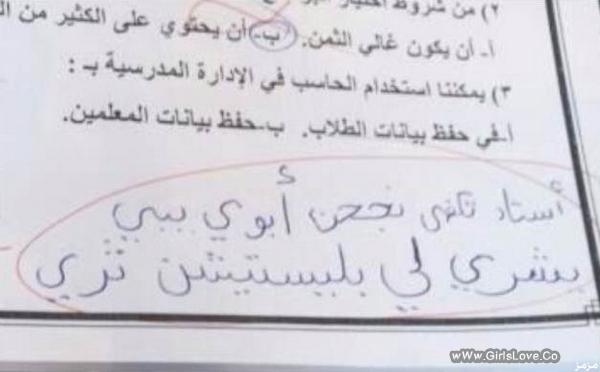 ٢) من شروط اختيار
أ- أن يكون غالي الثمن. ب- أن يحتوي على الكثير من
٣) يمكننا استخدام الحاسب في الإدارة المدرسية بـ :
أ-في حفظ بيانات الطلاب. ب-حفظ بيانات المعلمين.
أستاد تكفى نجحن أبوي يبي
يشري لي بليستيشن ثري
www.GirlsLove.Co
مزمز